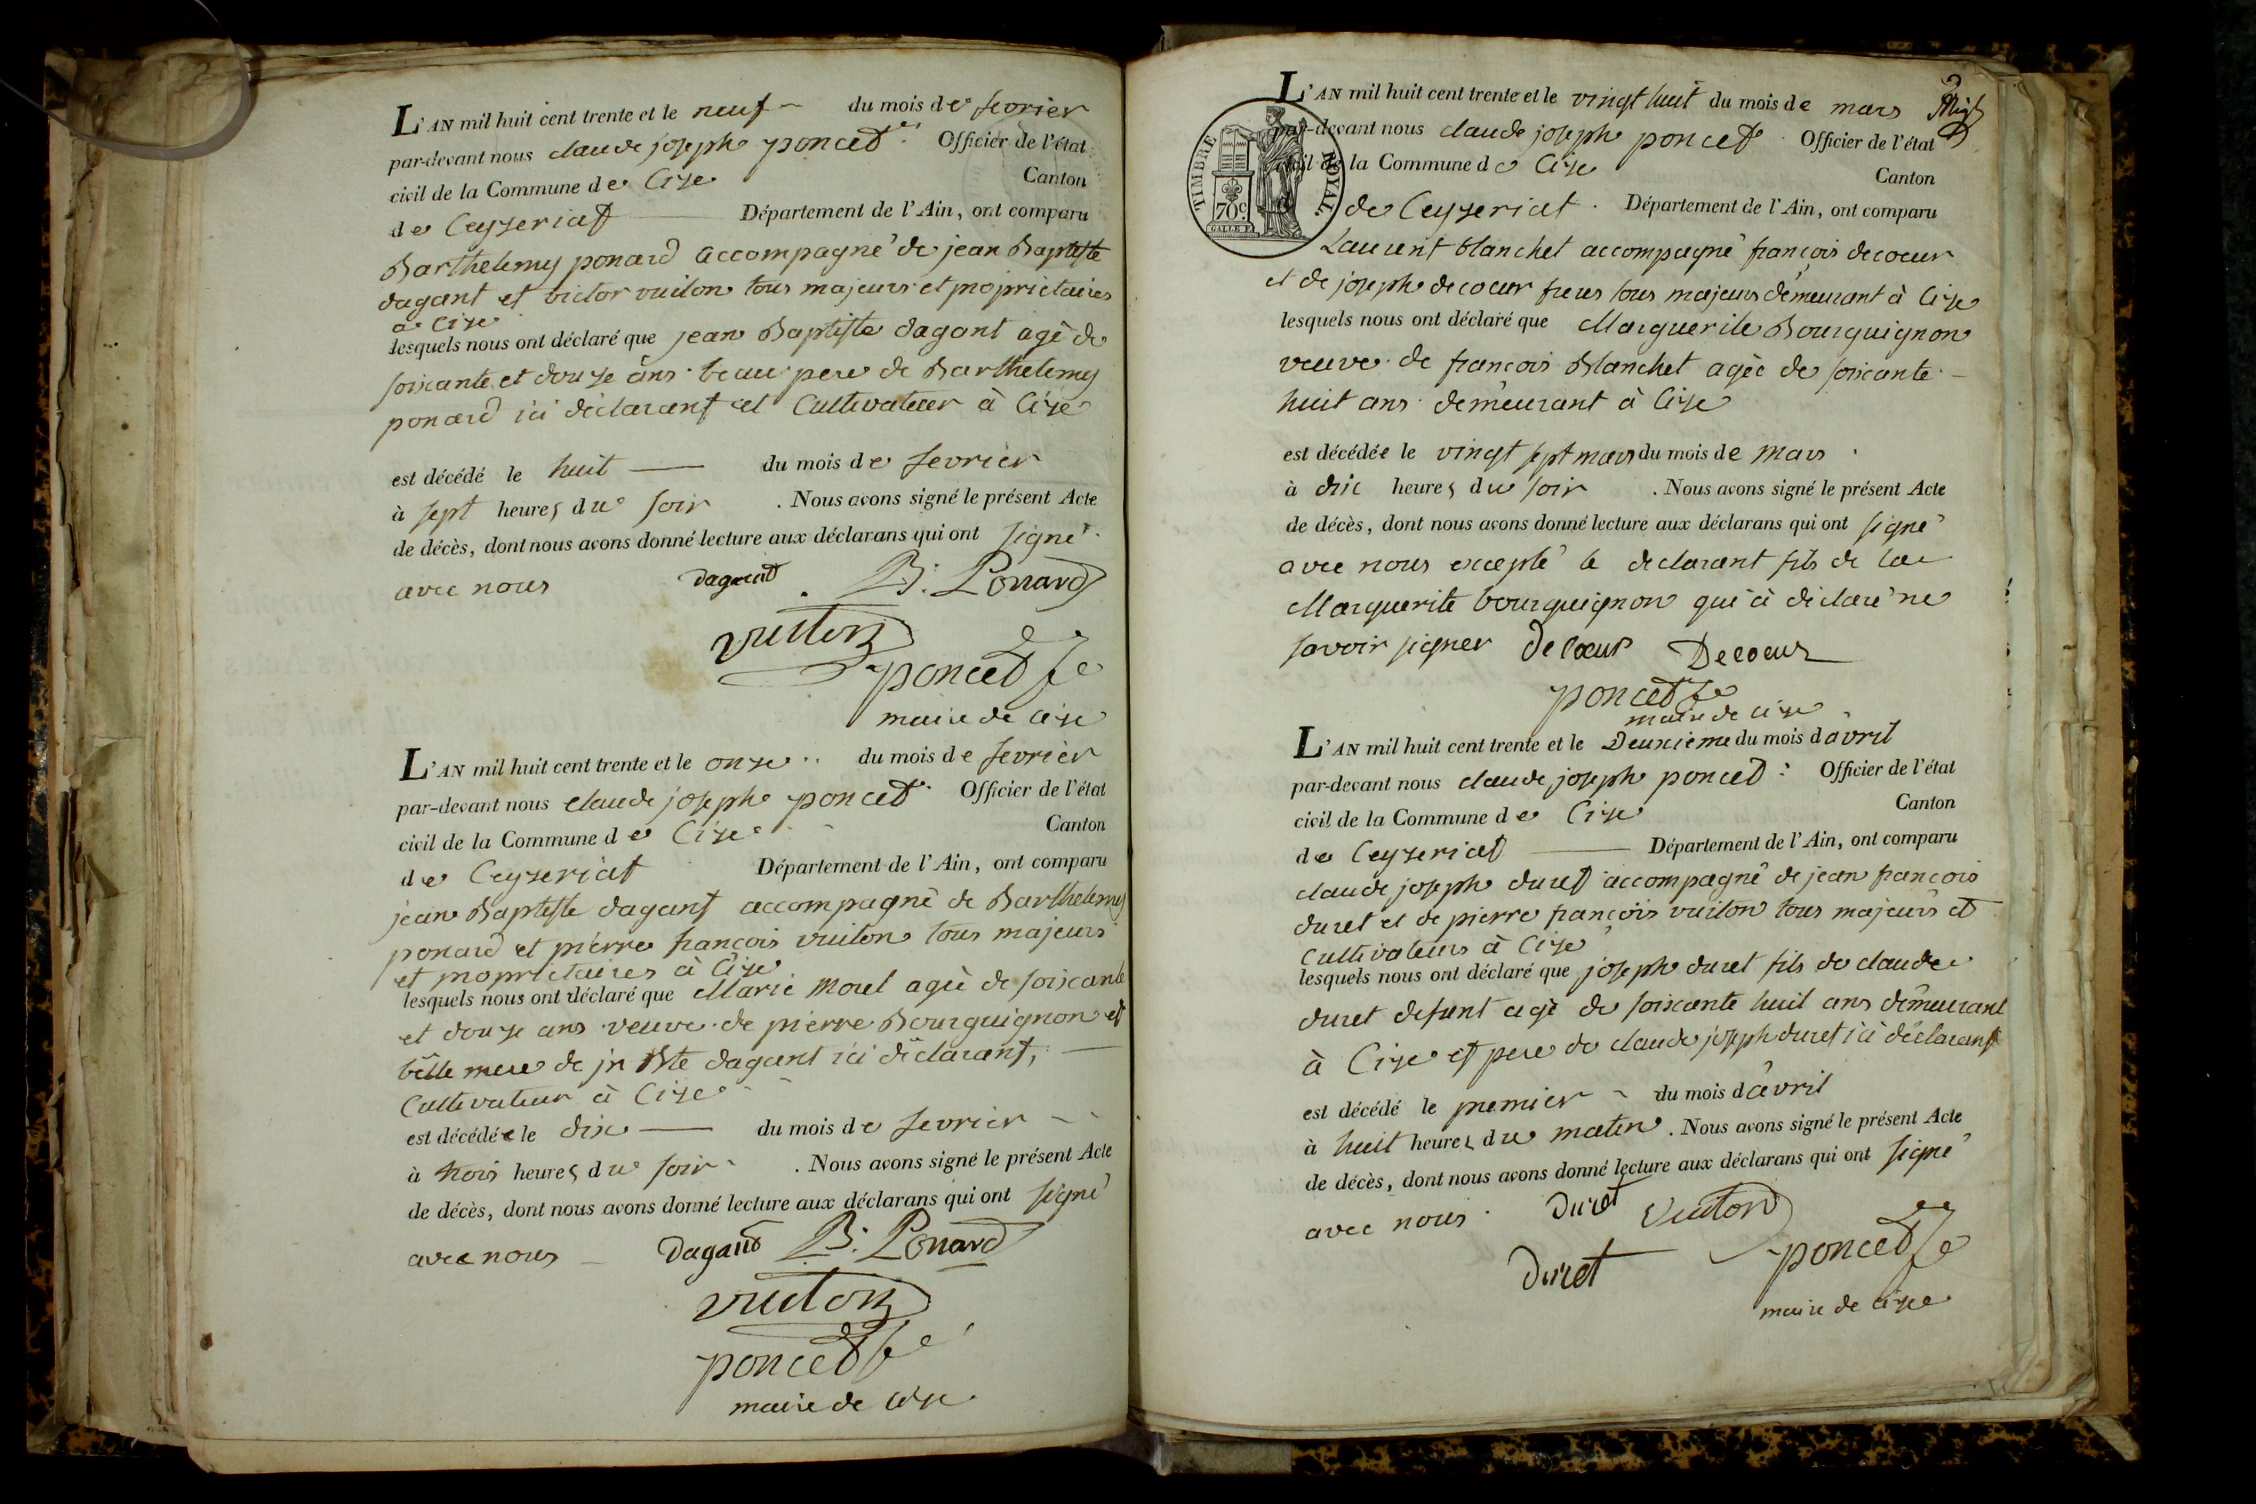 L'AN mil huit cent trente et le neuf du mois de fevrier
par-devant nous claude joseph poncet Officier de l'état
civil de la Commune de Cize Canton
de Ceyzeriat Département de l'Ain, ont comparu
Barthelemy ponard accompagné de jean Baptiste
dagant et victor vuiton tous majeurs et proprietaires
a Cize
lesquels nous ont déclaré que jean Baptiste dagant agé de
soixante et douze ans beau pere de Barthelemy
ponard ici déclarant et Cultivateur à Cize
est décédé le huit du mois de fevrier
à sept heures du soir . Nous avons signé le présent Acte
de décès, dont nous avons donné lecture aux déclarans qui ont signé
avec nous dagant B. Ponard
vuiton
poncet
maire de cize
L'AN mil huit cent trente et le onze du mois de fevrier
par-devant nous claude joseph poncet Officier de l'état
civil de la Commune de Cize Canton
de Ceyzeriat Département de l'Ain, ont comparu
jean Baptiste dagant accompagné de Barthelemy
ponard et pierre francois vuiton tous majeurs
et proprietaires à Cize
lesquels nous ont déclaré que Marie Morel agée de soixante
et douze ans veuve de pierre Bourguignon et
belle mere de jn Bte dagant ici déclarant,
Cultivateur à Cize
est décédée le dix du mois de fevrier
à trois heures du soir . Nous avons signé le présent Acte
de décès, dont nous avons donné lecture aux déclarans qui ont signé
avec nous Dagand B. Ponard
vuiton
poncet
maire de cize
L'AN mil huit cent trente et le vingt huit du mois de mars
par-devant nous claude joseph poncet Officier de l'état
civil de la Commune de Cize Canton
TIMBRE ROYAL
70c
de Ceyzeriat . Département de l'Ain, ont comparu
Laurent blanchet accompagné françois decoeur
et de joseph decoeur freres tous majeurs demeurant à Cize
lesquels nous ont déclaré que Marguerite Bourguignon
veuve de francois Blanchet agée de soixante
huit ans demeurant à Cize
est décédée le vingt sept mars du mois de mars
à dix heures du soir . Nous avons signé le présent Acte
de décès, dont nous avons donné lecture aux déclarans qui ont signé
avec nous excepté le declarant fils de la
Marguerite bourguignon qui à déclaré ne
savoir signer decoeur Decoeur
poncet
maire de cize
L'AN mil huit cent trente et le Deuxieme du mois d'avril
par-devant nous claude joseph poncet Officier de l'état
civil de la Commune de Cize Canton
de Ceyzeriat Département de l'Ain, ont comparu
claude joseph duret accompagné de jean francois
duret et de pierre françois vuiton tous majeurs et
Cultivateurs à Cize
lesquels nous ont déclaré que joseph duret fils de claude
duret defunt agé de soixante huit ans demeurant
à Cize et pere de claude joseph duret ici déclarant
est décédé le premier du mois d'avril
à huit heures du matin . Nous avons signé le présent Acte
de décès, dont nous avons donné lecture aux déclarans qui ont signé
avec nous Duret vuiton
Duret poncet
maire de cize